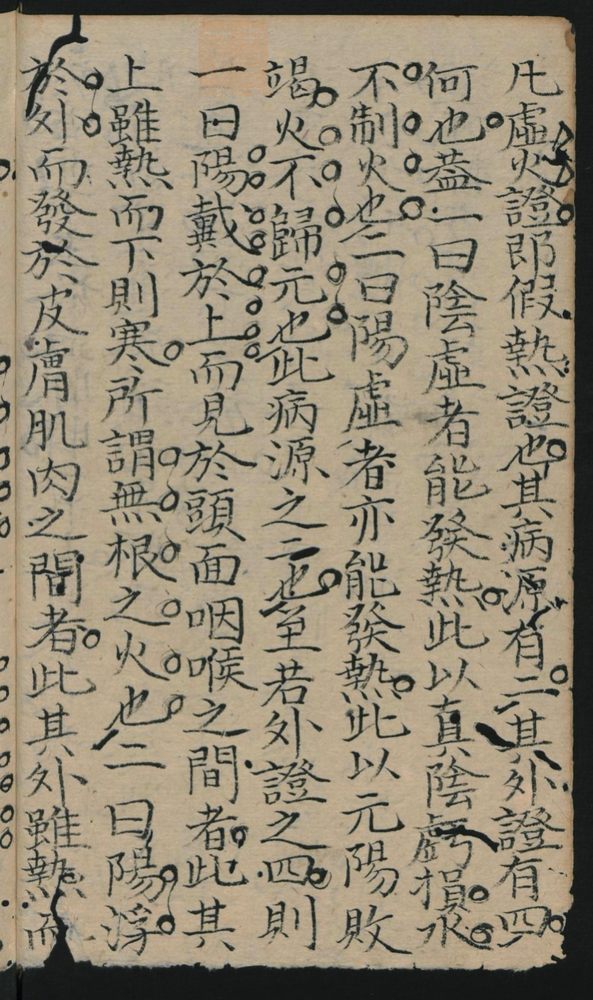 凡虛火證即假熱證也其病源有二其外證有四
何也蓋一曰陰虛者能發熱此以真陰虧損水
不制火也二曰陽虛者亦能發熱此以元陽敗
竭火不歸元也此病源之二也至若外證之四則
一曰陽戴於上而見於頭面咽喉之間者此其
上雖熱而下則寒所謂無根之火也二曰陽浮
於外而發於皮膚肌肉之間者此其外雖熱而